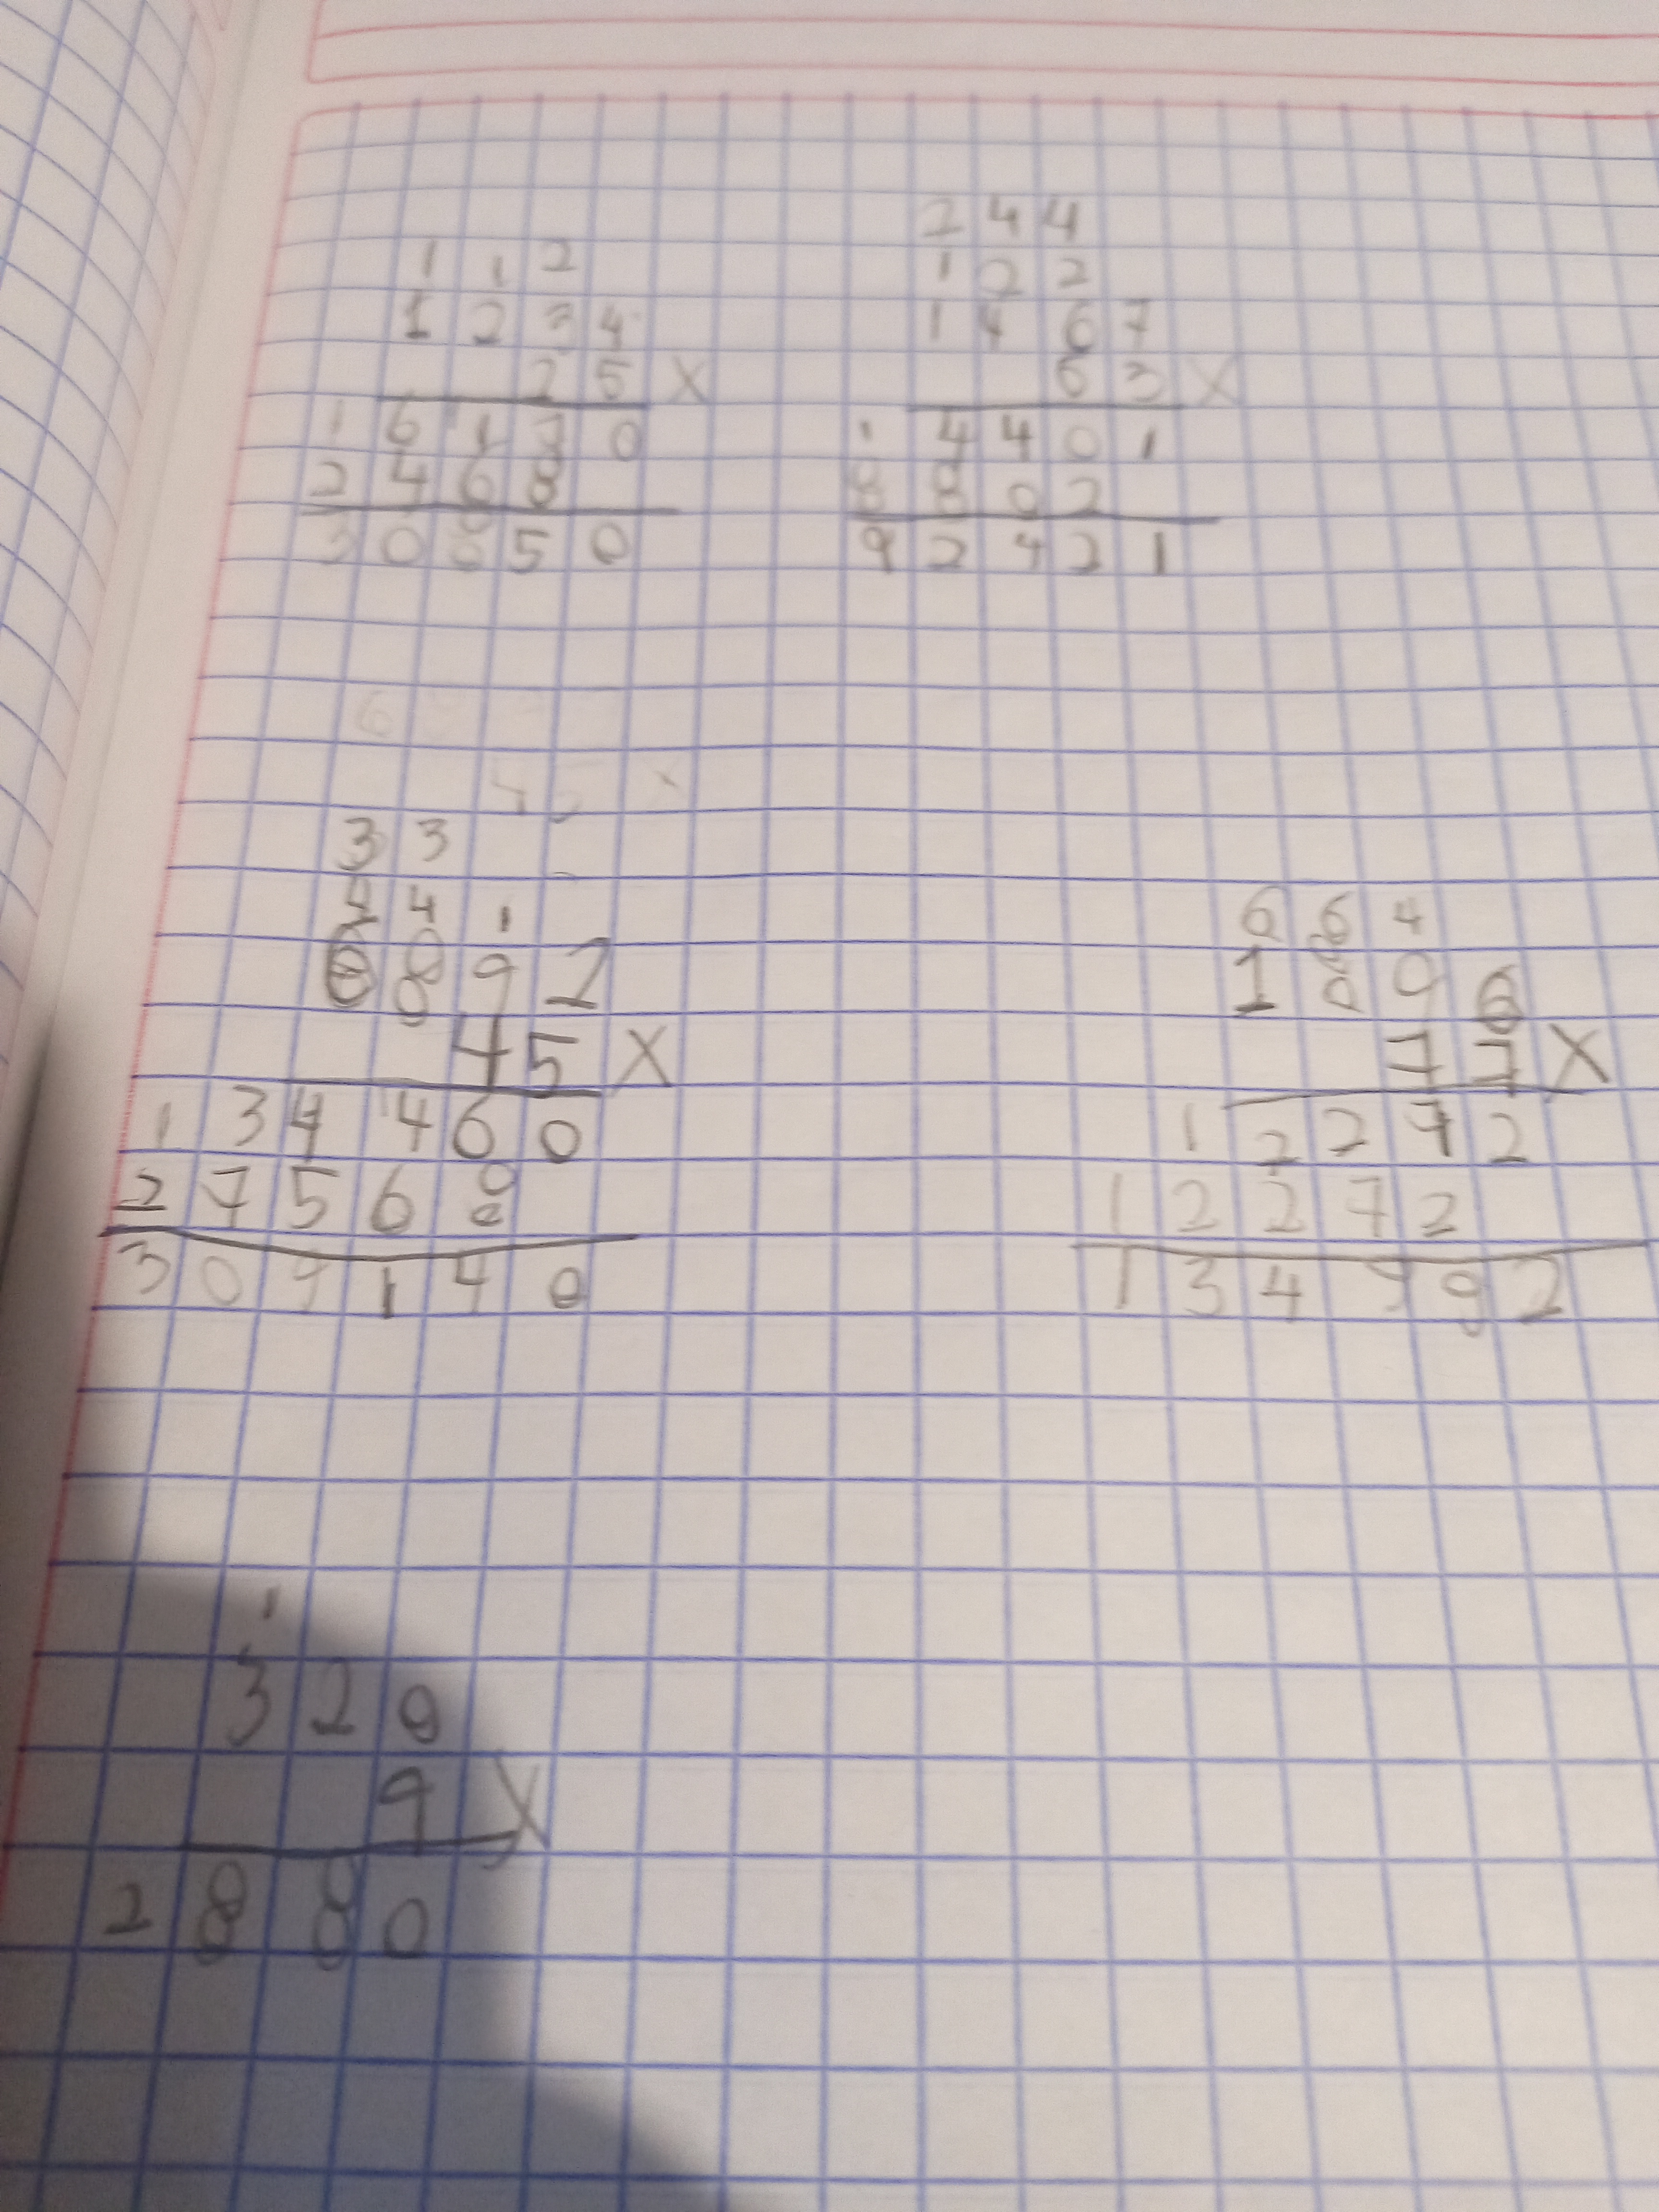 1 1 2
1 2 3 4
2 5 X
1 6 1 7 0
2 4 6 8
3 0 8 5 0
2 4 4
1 2 2
1 4 6 7
6 3 X
1 4 4 0 1
8 8 0 2
9 2 4 2 1
3 3
4 4 1
8 9 2
4 5 X
1 3 4 4 6 0
2 7 5 6 8
3 0 9 1 4 0
6 6 4
1 8 9 6
7 7 X
1 2 2 7 2
1 2 2 7 2
1 3 4 9 9 2
1
3 2 0
9 X
2 8 8 0